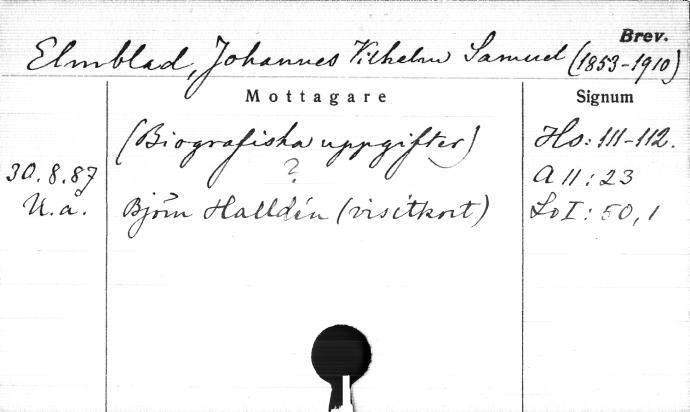 Brev.
Elmblad, Johannes Vilhelm Samuel (1853-1910)
Mottagare Signum
(Biografiska uppgifter) Hs: 111-112.
30.8.87 ? A 11: 23
U.å. Björn Halldén (visitkort) Lo I: 50, 1